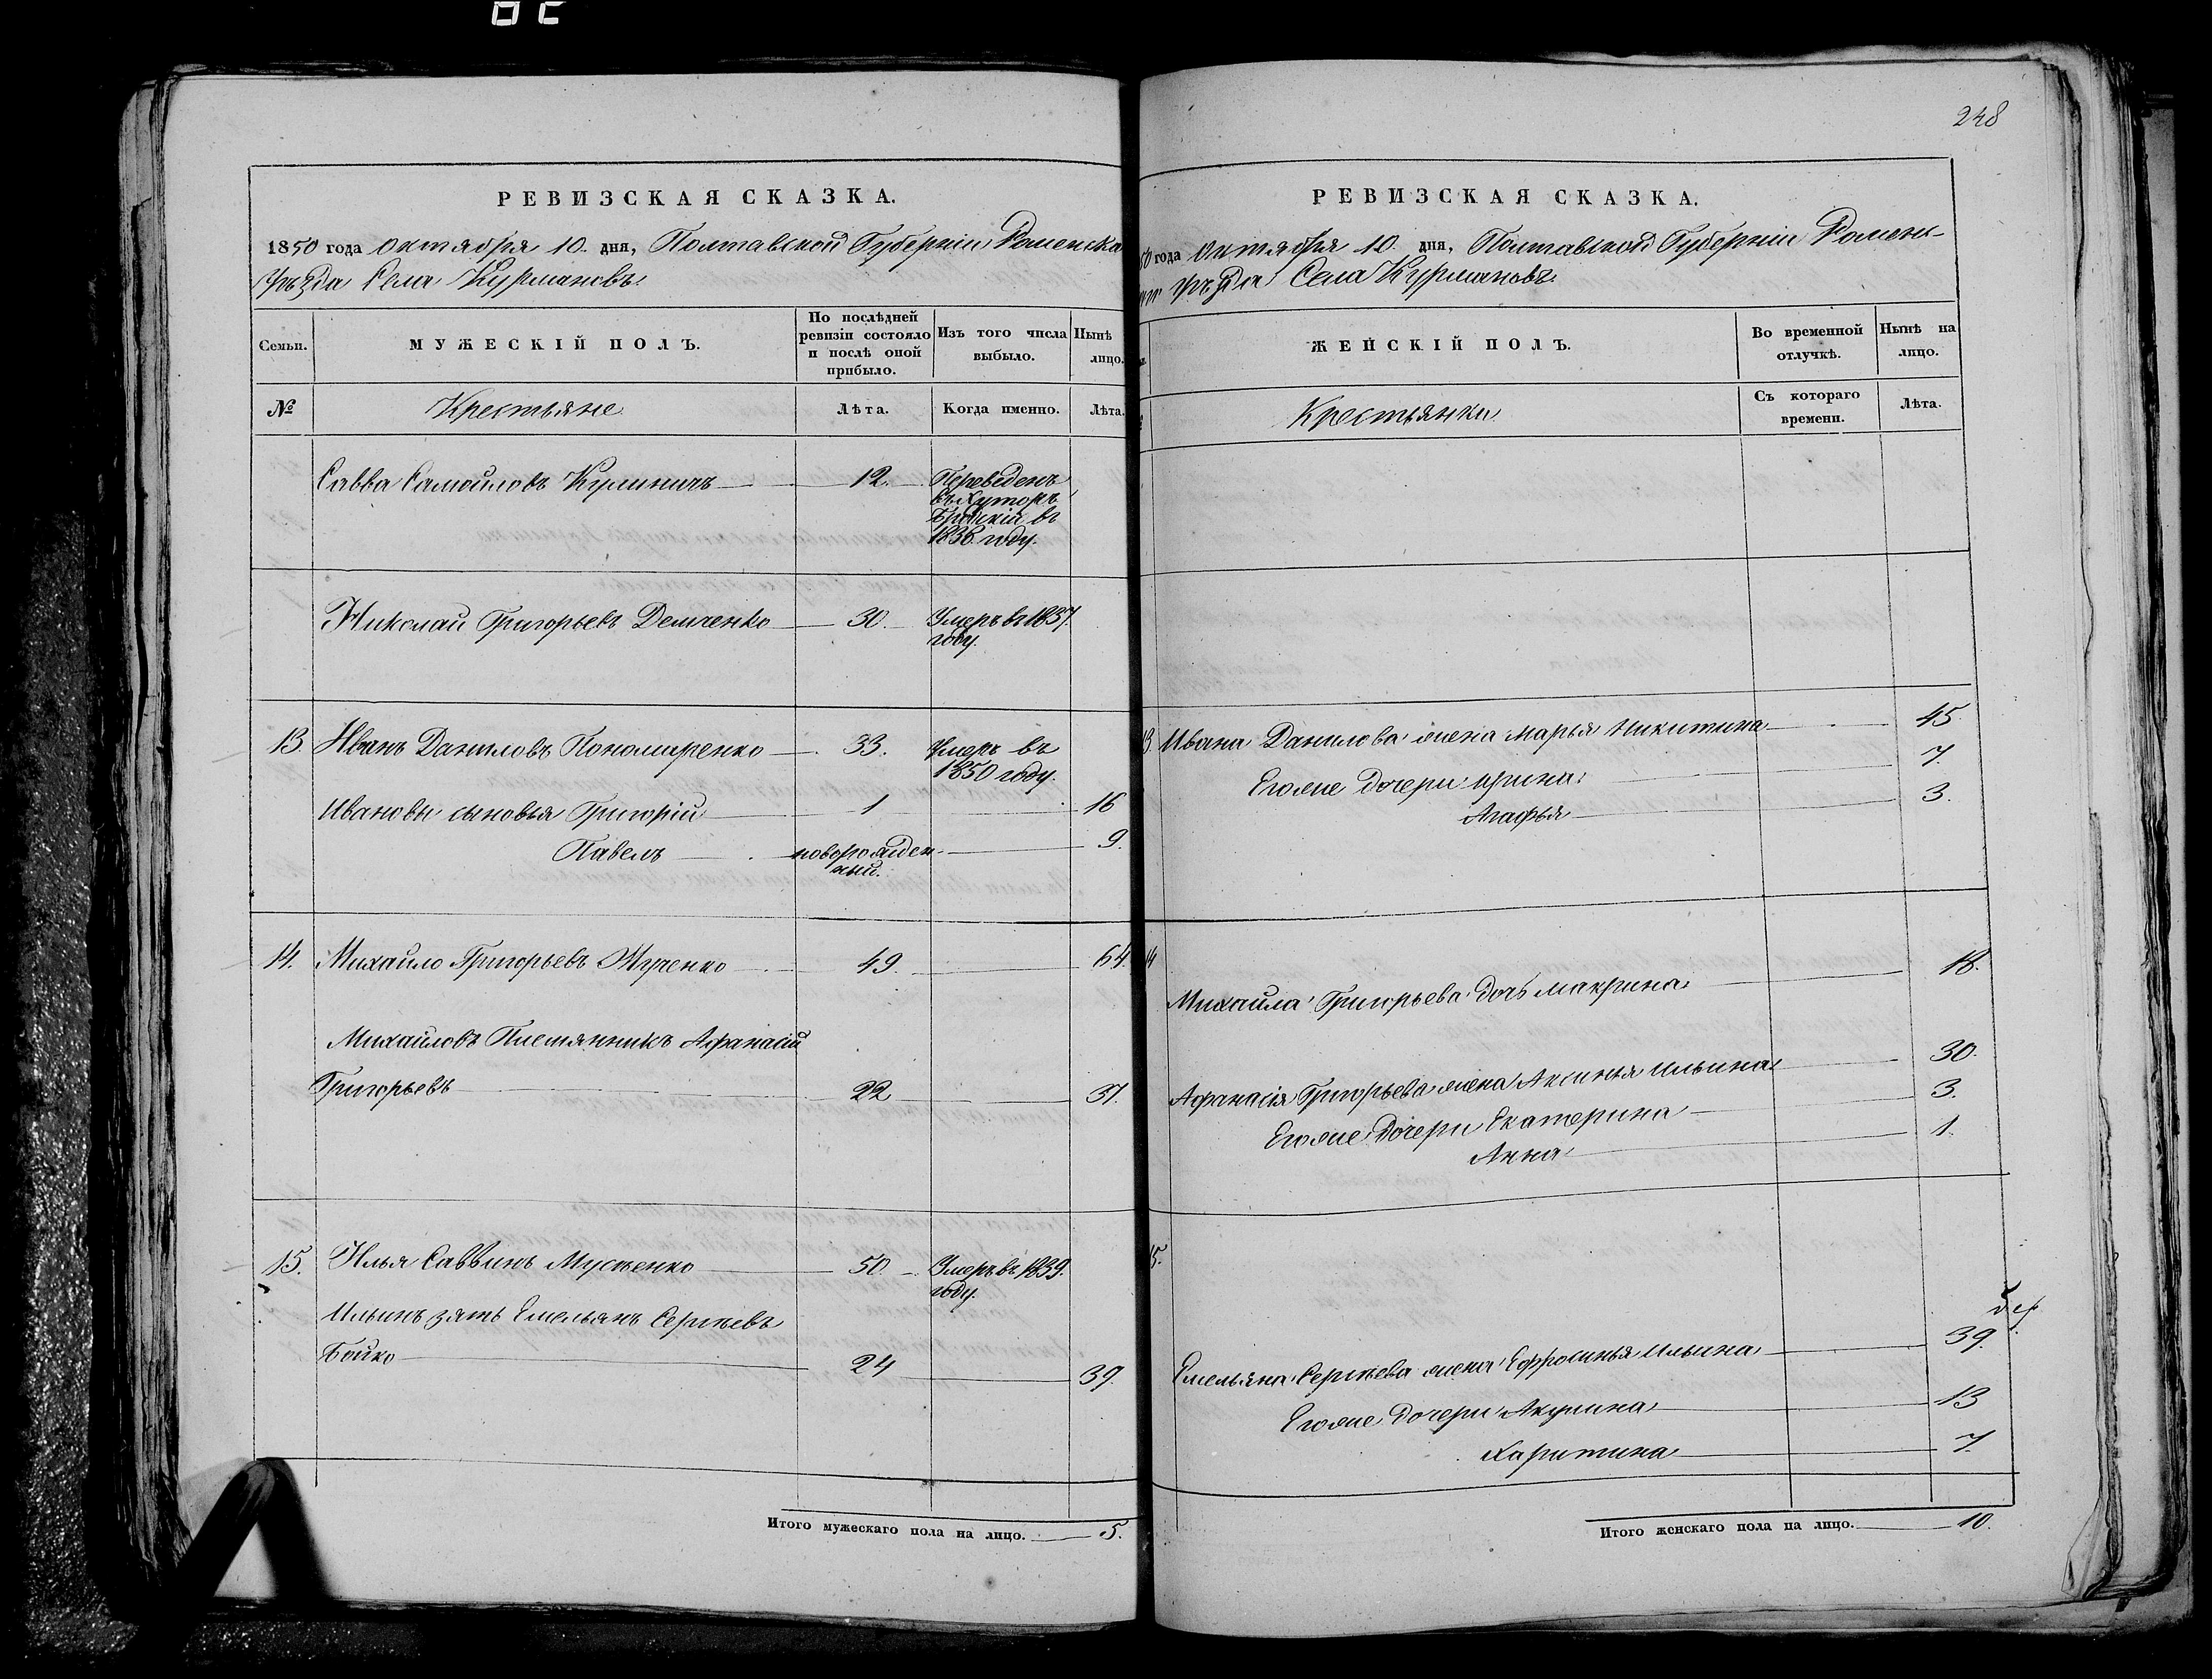 248
РЕВИЗСКАЯ СКАЗКА.
1850 года октября 10. дня, Полтавской Губерніи Роменска
уѣзда Села Курмановъ.
Семьи.
МУЖЕСКІЙ ПОЛЪ.
По послѣдней
ревизіи состояло
и послѣ оной
прибыло.
Изъ того числа
выбыло.
Нынѣ
лицо.
№
Крестьяне
Лѣта.
Когда именно.
Лѣта.
Савва Самойловъ Кулиничъ 12. Переведенъ
въ Хуторъ
въ
1836 году.
Николай Григорьевъ Демченко 30. Умеръ въ 1837.
году.
13. Иванъ Даниловъ Пономаренко 33. Умеръ въ
1850 году.
Ивановы сыновья Григорій 1 16
Павелъ новорожден- 9.
ный.
14. Михайло Григорьевъ 49. 64.
Михайловъ Племянникъ Афанасій
Григорьевъ 22 37.
15. Илья Саввинъ 50. Умеръ въ 1839.
году.
Ильинъ зять Емельянъ Сергѣевъ
Бойко 24 39.
Итого мужескаго пола на лицо. 5.
РЕВИЗСКАЯ СКАЗКА.
50 года Октября 10. дня, Полтавской Губерніи Ромен-
уѣзда Села Курмановъ.
ЖЕНСКІЙ ПОЛЪ.
Во временной
отлучкѣ.
Нынѣ на
лицо.
Крестьянки
Съ котораго
времени.
Лѣта.
13. Ивана Данилова жена Марья Никитина 45.
Егоже дочери Ирина 7.
Агафья 3.
14
Михайла Григорьева дочь Макрина 18.
Афанасія Григорьева жена Аксинья Ильина 30.
Егоже дочери Екатерина 3.
Анна 1.
15.
Емельяна Сергѣева жена Ефросинья Ильина 39.
Егоже дочери Акулина 13
Харитина 7.
Итого женскаго пола на лицо. 10.